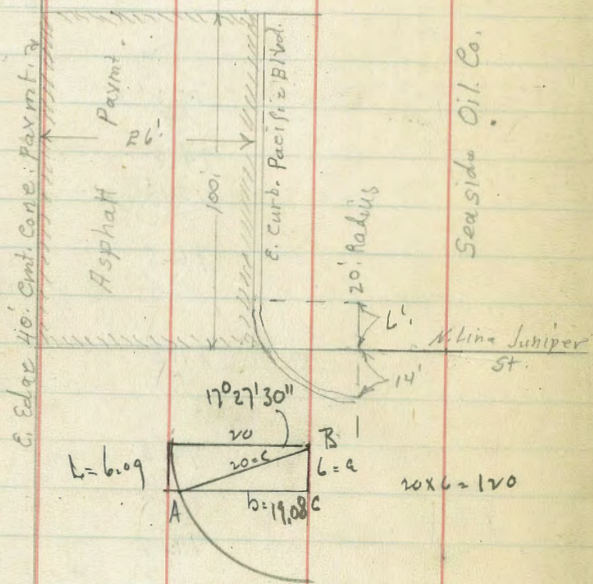 E. Edge 40' Cmt. Conc. Pavmt.
Asphalt Pavmt.
26'
100'
E. Curb. Pacific Blvd.
20' Radius
Seaside Oil Co.
6'
14'
N. Line Juniper St.
17° 27' 30"
20
B
20=c
6=a
L=6.09
A
b=19.08
C
20x6=120